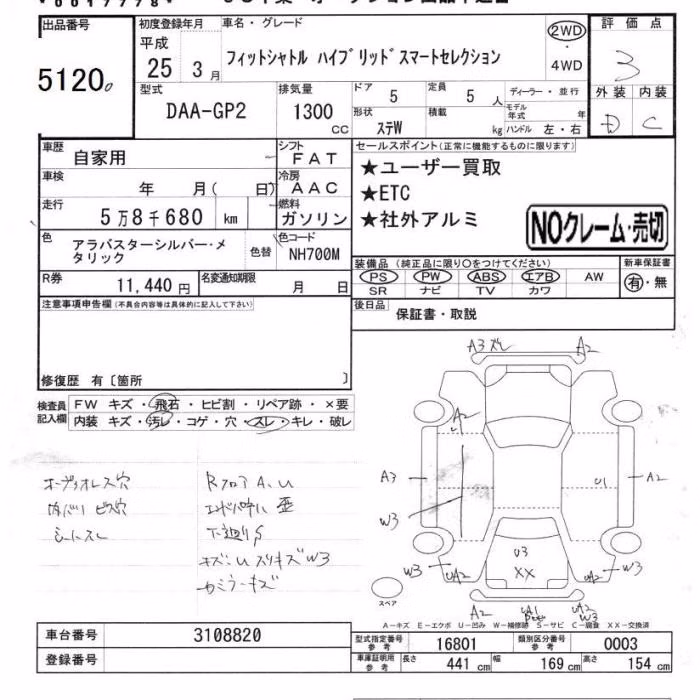 出品番号
5120
初度登録年月
平成
25 3月
車名・グレード
フィットシャトル ハイブリッドスマートセレクション
2WD
4WD
評価点
3
外装 内装
D C
型式
DAA-GP2
排気量
1300 cc
ドア 5
定員 5 人
形状 ステW
積載 kg
ディーラー・並行
モデル年式 年
ハンドル 左・右
車歴 自家用
シフト FAT
車検 年 月( 日)
冷房 AAC
走行 5万8千680 km
燃料 ガソリン
色 アラバスターシルバー・メタリック
色替
色コード NH700M
R券 11,440円
名変通知期限 月 日
セールスポイント(正常に機能するものに限ります)
★ユーザー買取
★ETC
★社外アルミ
NOクレーム・売切
装備品(純正品に限り○をつけてください)
新車保証書
PS PW ABS エアB AW
SR ナビ TV カワ
有・無
後日品
保証書・取説
注意事項申告欄(不具合内容等は具体的に記入して下さい)
修復歴 有〔箇所 〕
検査員記入欄
FW キズ・飛石・ヒビ割・リペア跡・×要
内装 キズ・汚レ・コゲ・穴・スレ・キレ・破レ
オーディオレス穴
内バリ ビス穴
シートスレ
RフロアA、U
下廻りS
キズ・U スリキズW3
A3 A2
A2
A3
W3
U1
A2
W3
UA2
U3
XX
UA2
W3
スペア
A2
UA2
W3
A-キズ E-エクボ U-凹み W-補修跡 S-サビ C-腐食 XX-交換済
車台番号 3108820
登録番号
型式指定番号 参考 16801
類別区分番号 参考 0003
車庫証明用 参考 長さ 441 cm 幅 169 cm 高さ 154 cm